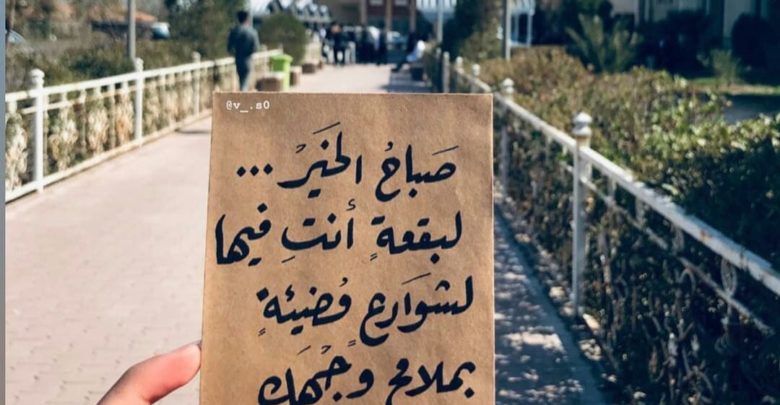 @v_.s0
صَباحُ الخَيرْ ...
لبقعةٍ أنتِ فيها
لشَوَارعٍ مُضيئةٍ
بملامحِ وجُهَكِ